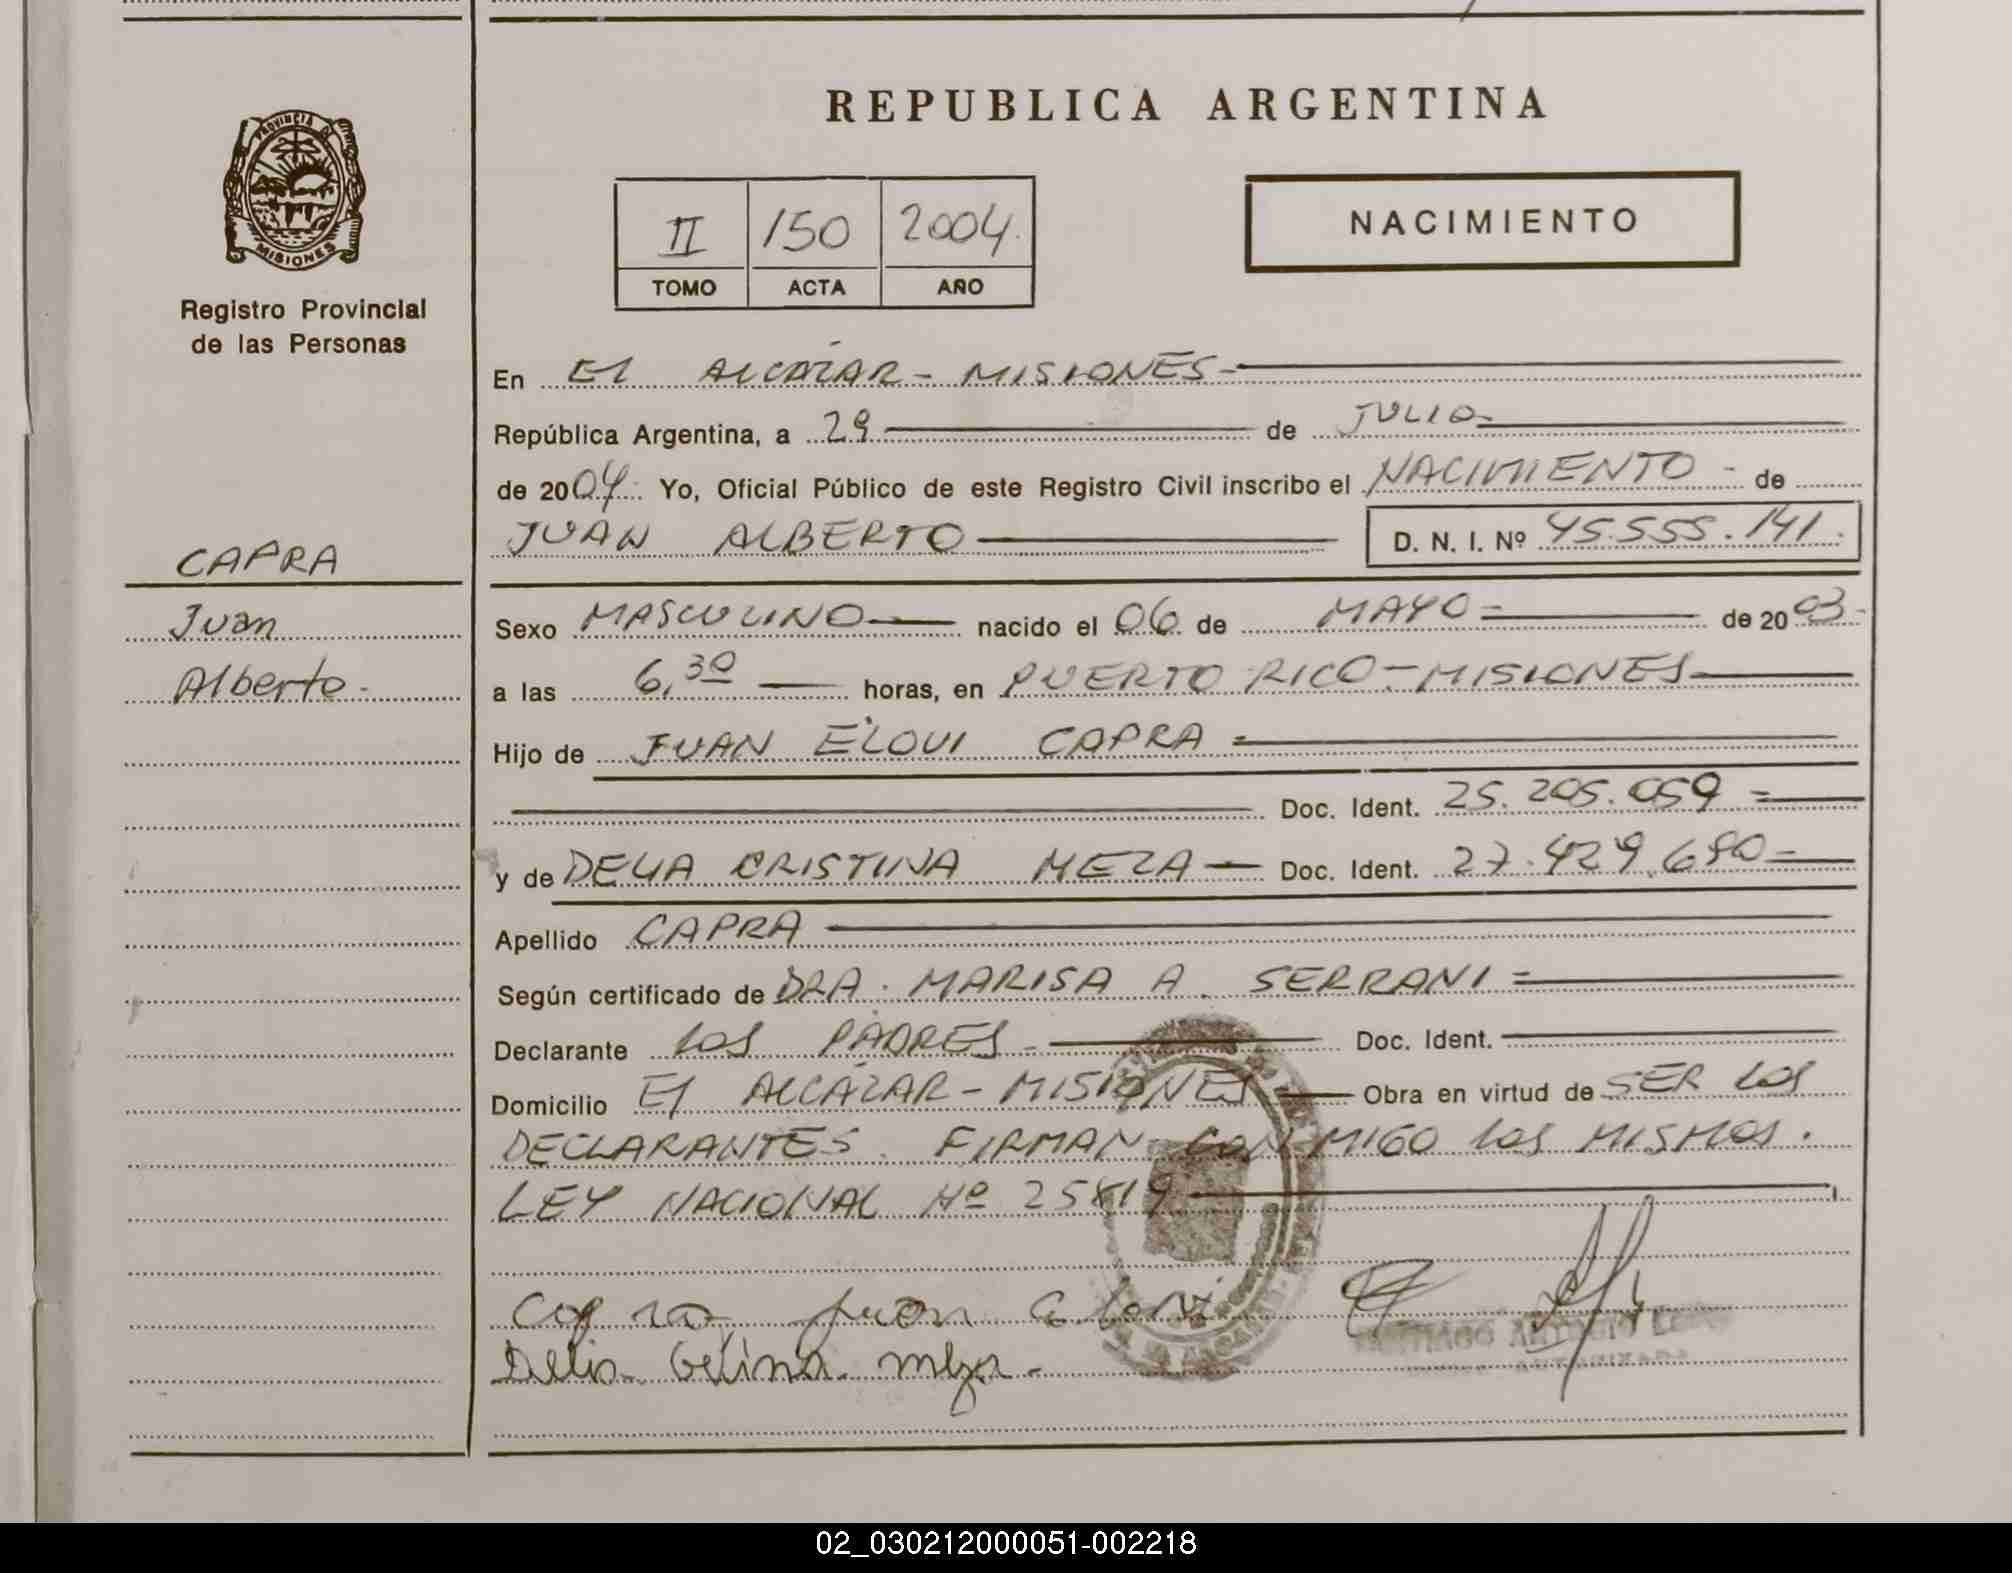 REPUBLICA ARGENTINA
PROVINCIA DE
MISIONES
Registro Provincial
de las Personas
II 150 2004
TOMO ACTA AÑO
NACIMIENTO
En El ALCAZAR - MISIONES -
República Argentina, a 29 de JULIO
de 2004 Yo, Oficial Público de este Registro Civil inscribo el NACIMIENTO - de
JUAN ALBERTO D. N. I. Nº 45.555.141
CAPRA
Juan
Alberto.
Sexo MASCULINO nacido el 06 de MAYO de 2003
a las 6,30 horas, en PUERTO RICO - MISIONES
Hijo de JUAN ELOUI CAPRA
Doc. Ident. 25.205.059
y de DELIA CRISTINA MEZA Doc. Ident. 27.429.690
Apellido CAPRA
Según certificado de DRA. MARISA A. SERRANI
Declarante LOS PADRES Doc. Ident.
Domicilio El ALCÁZAR - MISIONES Obra en virtud de SER LOS
DECLARANTES. FIRMAN CONMIGO LOS MISMOS.
LEY NACIONAL Nº 25819
juan
Delia meza
SANTIAGO ANTONIO
02_030212000051-002218